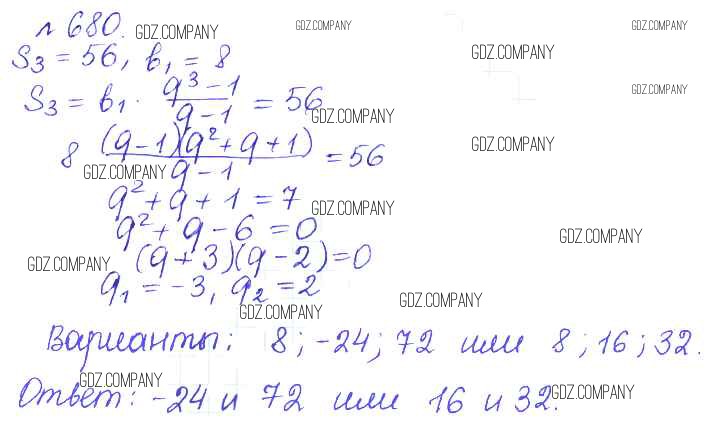 № 680. GDZ.COMPANY GDZ.COMPANY GDZ.COMPANY
S₃ = 56, b₁ = 8 GDZ.COMPANY
S₃ = b₁ · (q³ − 1)/(q − 1) = 56 GDZ.COMPANY GDZ.COMPANY
8 (q − 1)(q² + q + 1)/(q − 1) = 56 GDZ.COMPANY GDZ.COMPANY
q² + q + 1 = 7 GDZ.COMPANY
q² + q − 6 = 0 GDZ.COMPANY
(q + 3)(q − 2) = 0 GDZ.COMPANY
q₁ = −3, q₂ = 2 GDZ.COMPANY GDZ.COMPANY
Варианты: 8; −24; 72 или 8; 16; 32.
Ответ: −24 и 72 или 16 и 32. GDZ.COMPANY GDZ.COMPANY